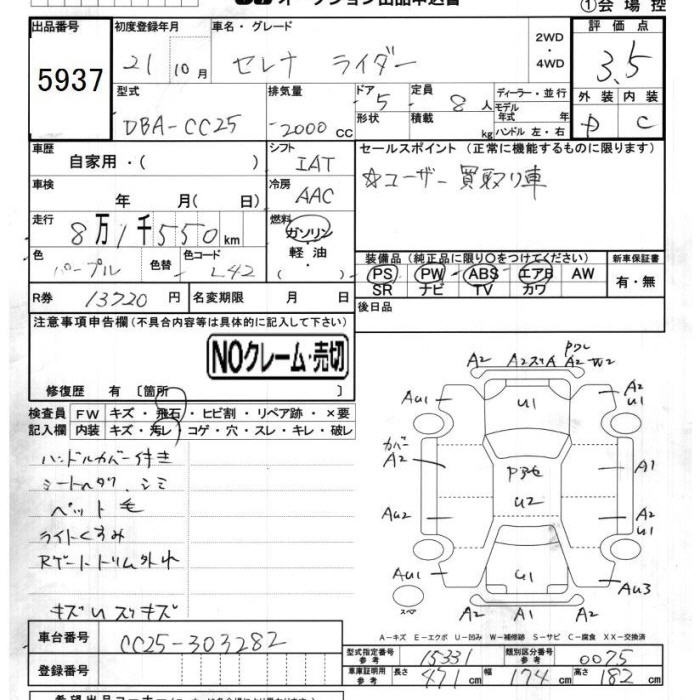 ①会場控
出品番号 初度登録年月 車名・グレード 2WD・4WD 評価点
5937 21 10月 セレナ ライダー 3.5
型式 排気量 ドア 定員 ディーラー・並行 外装 内装
DBA-CC25 2000cc 5 8人 モデル年式 年 D C
形状 積載 kg ハンドル 左・右
車歴 シフト セールスポイント (正常に機能するものに限ります)
自家用・( ) IAT ☆ユーザー買取り車
車検 冷房
年 月( 日) AAC
走行 燃料
8万1千550km ガソリン・軽油・( )
色 色替 色コード 装備品 (純正品に限り○をつけてください) 新車保証書
パープル L42 PS PW ABS エアB AW 有・無
SR ナビ TV カワ
R券 13720円 名変期限 月 日 後日品
注意事項申告欄(不具合内容等は具体的に記入して下さい)
NOクレーム・売切
修復歴 有 〔箇所 〕
検査員 FW キズ・飛石・ヒビ割・リペア跡・×要
記入欄 内装 キズ・汚レ・コゲ・穴・スレ・キレ・破レ
ハンドルカバー付き
シートヘタリ シミ
ペット毛
ライトくすみ
Rゲートトリム外れ
キズUスリキズ
A2 A2スリ A2 W2
AU1 U1 A2 U1
カバー A2 A1
Pアセ
U2
AU2 A2 U1
AU1 U1 AU3
スペア A2 A1 A2
A-キズ E-エクボ U-凹み W-補修跡 S-サビ C-腐食 XX-交換済
車台番号 CC25-303282
登録番号
型式指定番号 参考 15331 類別区分番号 参考 0075
車庫証明用 参考 長さ 471cm 幅 174cm 高さ 182cm